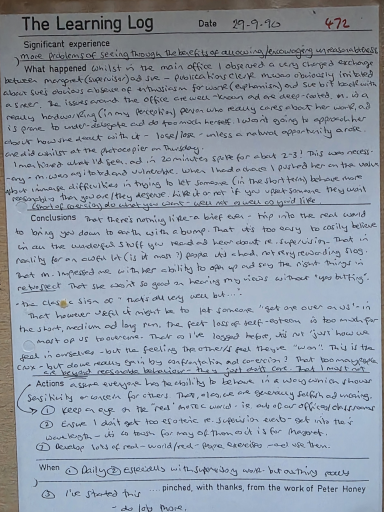 The Learning Log Date 29-9-90 472
Significant experience
More problems of seeing through the benefits of allowing/encouraging unreasonableness
What happened Whilst in the main office I observed a very charged exchange
between Margaret (supervisor) and Sue - publications clerk. M was obviously irritated
about Sue's obvious absence of enthusiasm for work (euphemism) and Sue bit back with
a sneer. The issues around the office are well-known and are deep-rooted. M. is a
really hardworking (in my perception) person who really cares about her work, and
is prone to under-delegate and do too much herself. I wasn't going to approach her
about how she dealt with it - lose/lose - unless a natural opportunity arose.
one did whilst at the photocopier on Thursday.
I mentioned what I'd seen and in 20 minutes spoke for about 2-3! This was necess-
ary - M was agitated and vulnerable. When I had a chance I pushed her on the value
about immense difficulties in trying to let someone (in the short term) behave more
reasonably than you are / they deserve. Like it or not if you upset someone they want
(short of
Conclusions That there's nothing like a brief ever - trip into the real world
to bring you down to earth with a bump. That it's too easy to easily believe
in all the wonderful stuff you read and hear about re. supervision. That in
reality for an awful lot (is it most?) people it's a hard, not very rewarding slog.
That M. impressed me with her ability to open up and say the right things in
retrospect That she wasn't so good on hearing my views without "yes butting".
- the classic sign of "that's all very well but...."
That however useful it might be to let someone "get one over on us" - in
the short, medium and long run, the felt loss of self-esteem is too much for
most of us to overcome. That as I've logged before, it's not just how we
feel in ourselves - but the feeling the others feel they've "won". This is the
crux - but do we really gain by confrontation and coercion? That too many people
are beyond reasonable behaviour - they just don't care. That I must not
Actions assume everyone has the ability to behave in a way which shows
sensitivity or concern for others. That, alas, we are generally selfish and moaning.
① Keep an eye on the 'real' world - ie out of our offices/classrooms
② Ensure I don't get too esoteric re. supervision events - get into their
wavelength - it's so tough for many of them as it is for Margaret.
③ Develop lots of real-world/real-people exercises - and use them.
When ① Daily ② especially with supervisory work - but anything really
③ I've started this ...pinched, with thanks, from the work of Peter Honey
- do/log more.